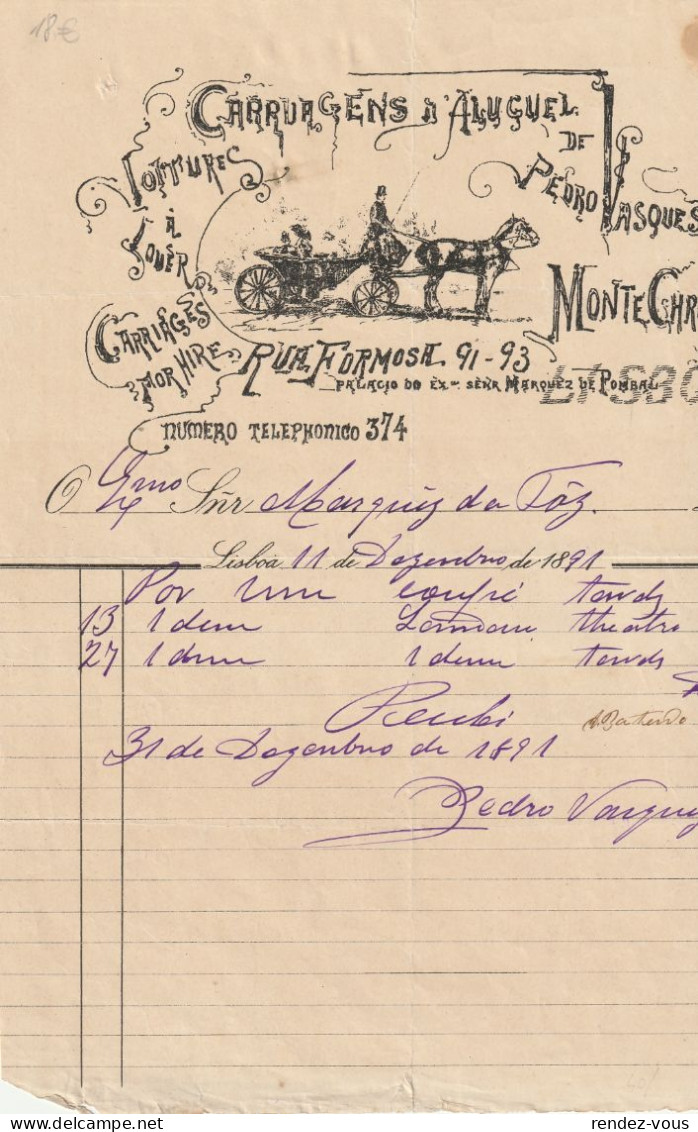 18€
CARRUAGENS D'ALUGUEL
DE
PEDRO VASQUES
VOITURES
À
LOUER
CARRIAGES
FOR HIRE
MONTE CHR
RUA FORMOSA 91-93
LISBO
PALACIO DO EX.mo SENR MARQUEZ DE POMBAL
NUMERO TELEPHONICO 374
O Exmo Sñr Marquez da Fóz.
Lisboa 11 de Dezembro de 1891
Por um coupé tarde
13 Idem Landau theatro
27 Idem Idem tarde
Recebi
31 de Dezembro de 1891
Pedro Vasques
rendez-vous